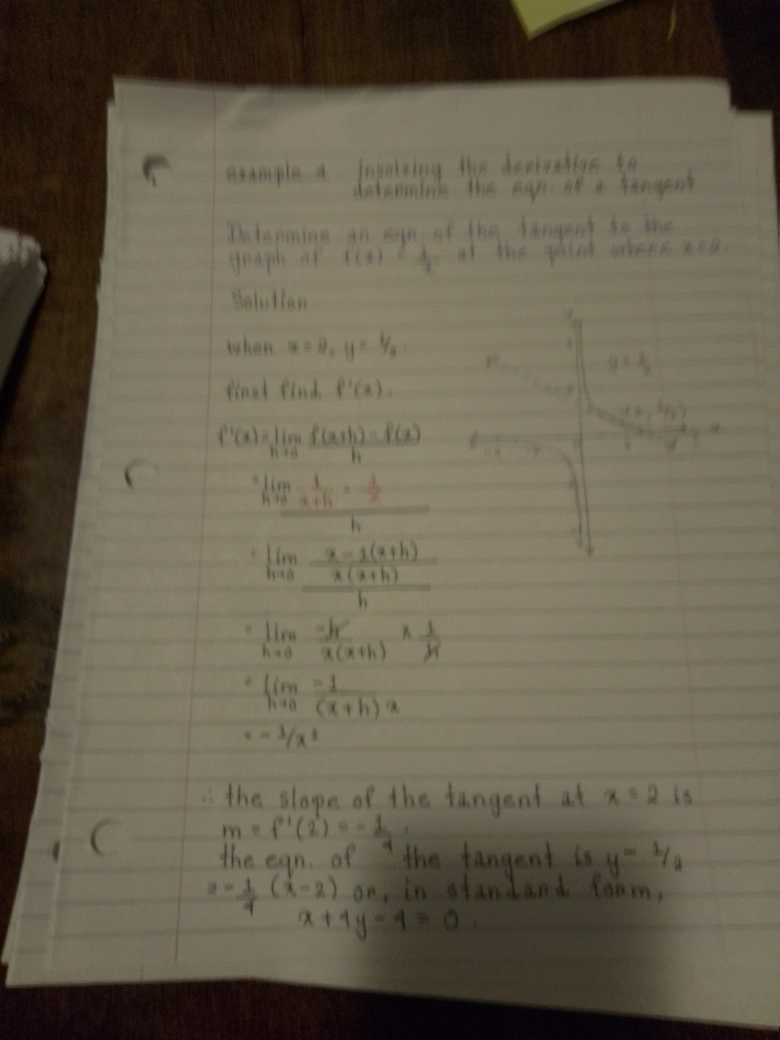 example 2 involving the derivative to
determine the eqn. of a tangent
Determine an eqn. of the tangent to the
graph of f(x) = 1/x at the point where x=2.
Solution
when x=2, y= 1/2.
first find f'(x).
f'(x)=lim h→0 f(x+h)-f(x) / h
=lim h→0 1/x+h - 1/x / h
= lim h→0 x-1(x+h) / x(x+h) / h
= lim h→0 -h / x(x+h) x 1/h
= lim h→0 -1 / (x+h) x
= -1/x²
y = 1/x
(2, 1/2)
∴ the slope of the tangent at x=2 is
m = f'(2) = -1/4.
the eqn. of the tangent is y- 1/2
= -1/4 (x-2) or, in standard form,
x+4y-4=0.